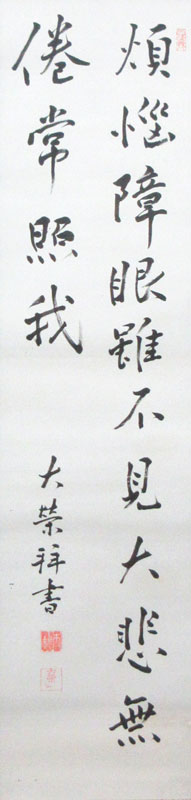 煩悩障眼雖不見大悲無
倦常照我
大榮拝書